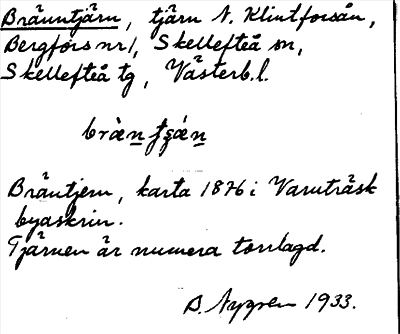 Bränntjärn, tjärn N. Klintforsån,
Bergfors nr 1, Skellefteå sn,
Skellefteå tg, Västerb.l.
bràn̲ t̠ʂǽn̲
Bräntjern, karta 1876 i Varuträsk
byaskrin.
Tjärnen är numera torrlagd.
B. Nygren 1933.